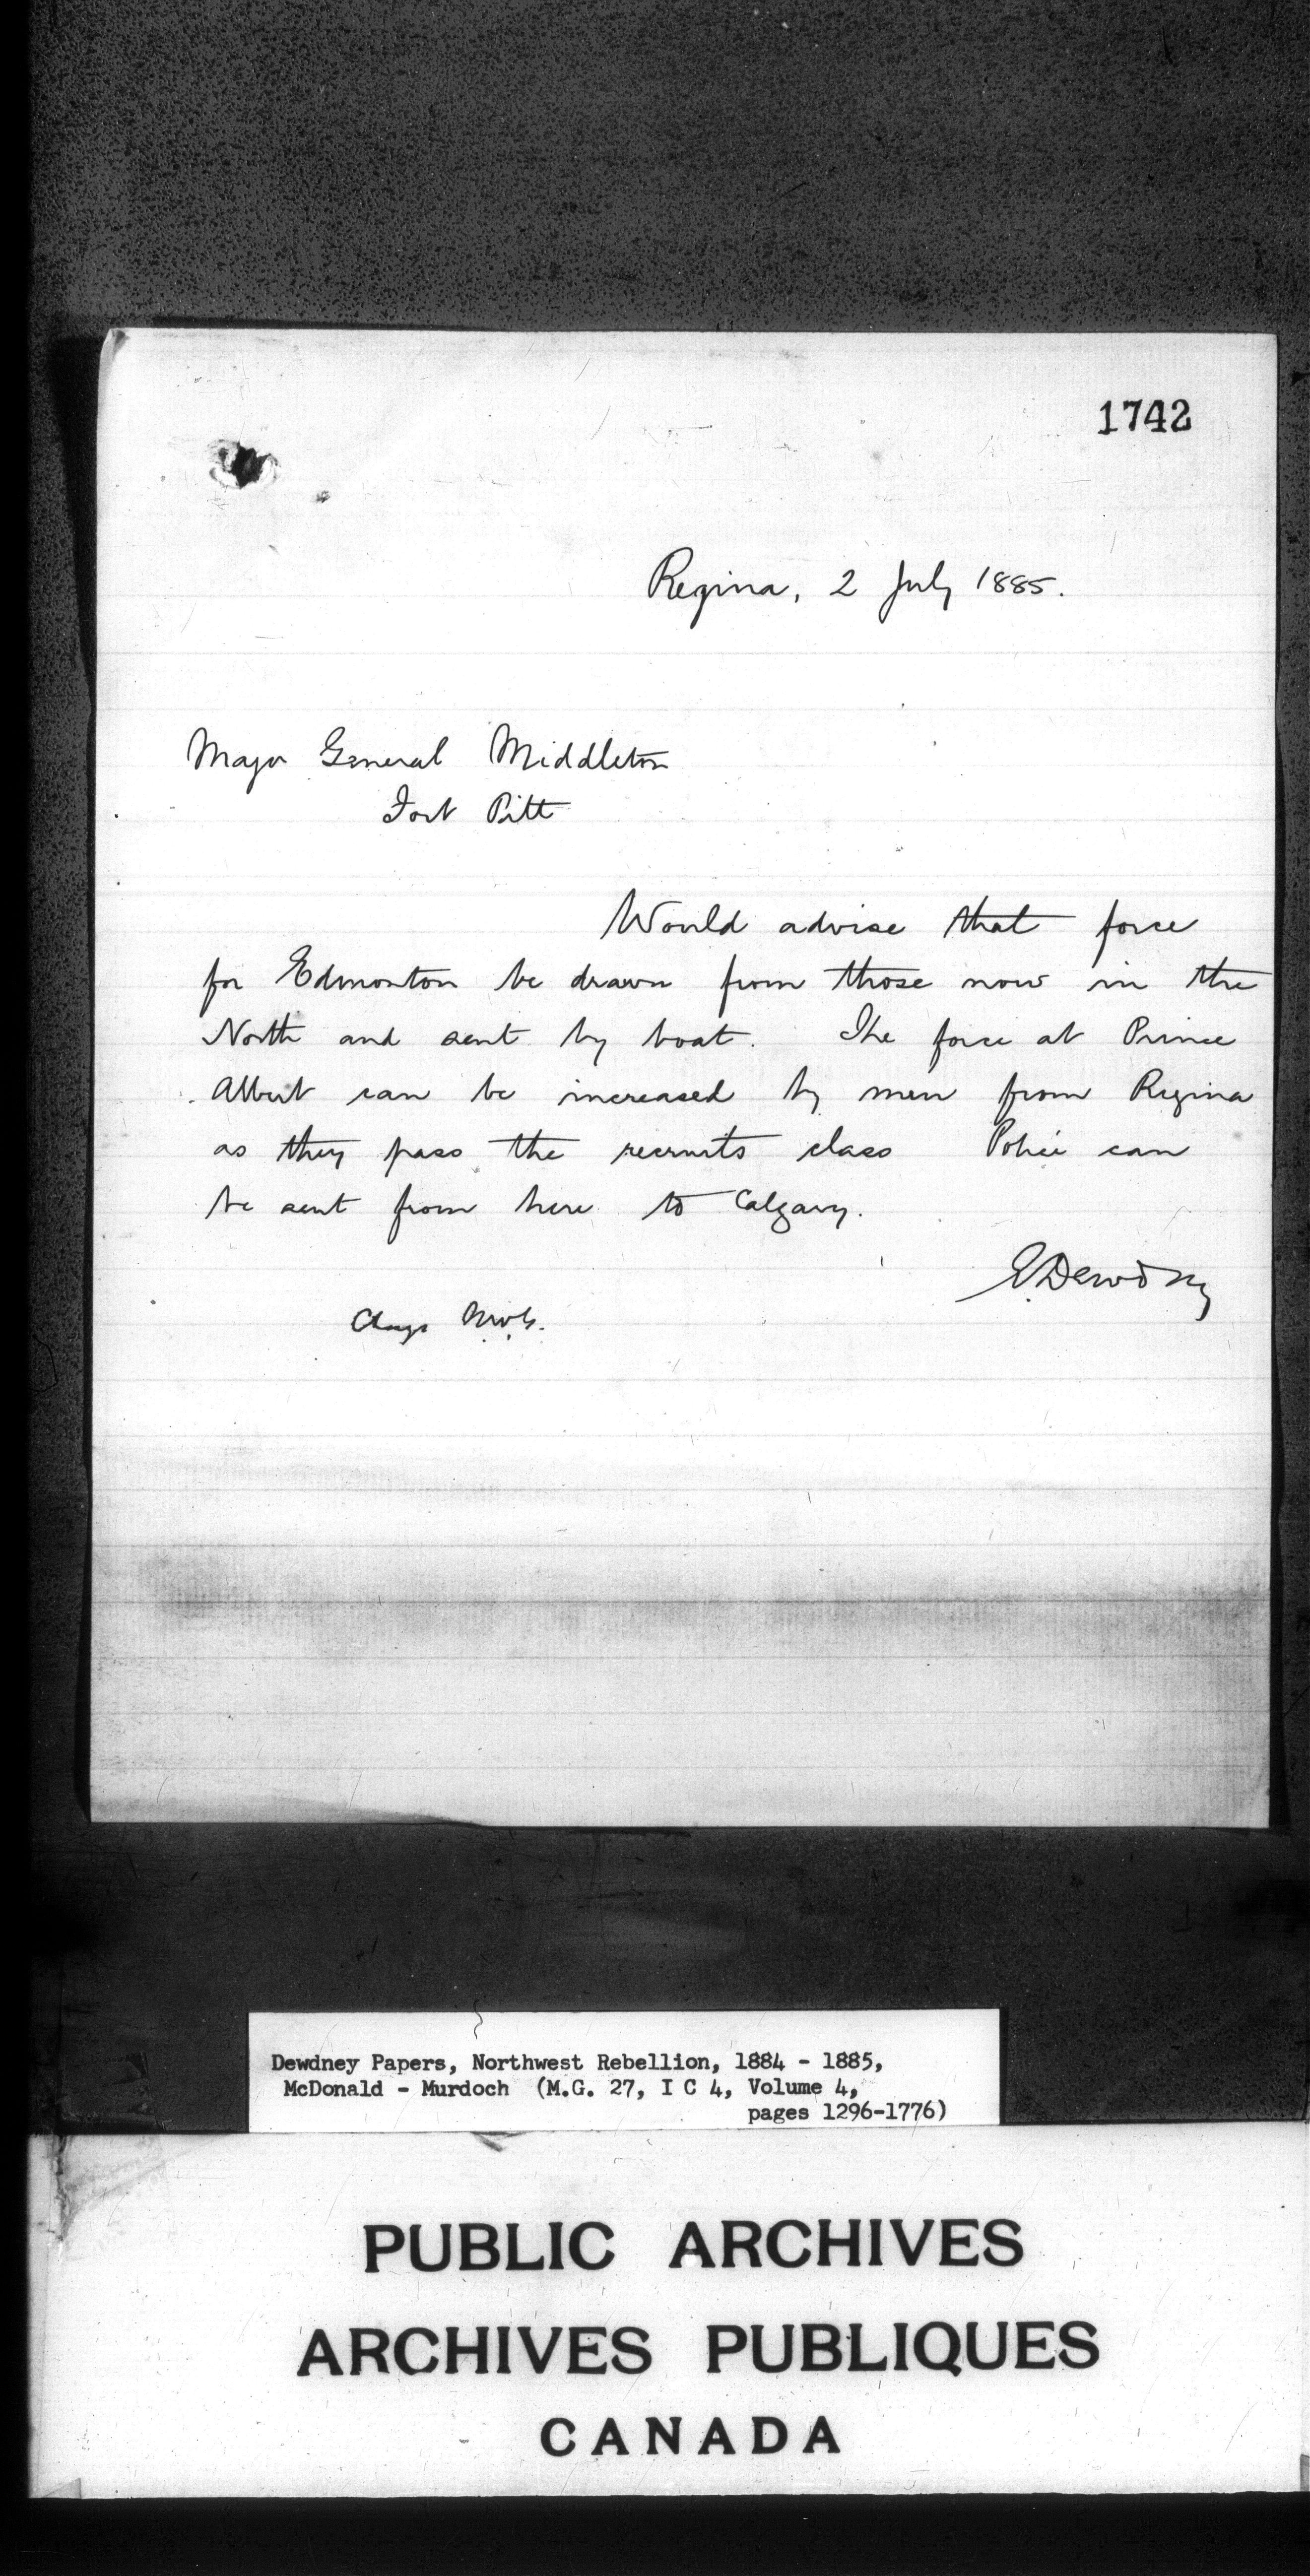 1742
Regina, 2 July 1885.
Major General Middleton
Fort Pitt
Would advise that force
for Edmonton be drawn from those now in the
North and sent by boat. The force at Prince
Albert can be increased by men from Regina
as they pass the recruits class Police can
be sent from here to Calgary.
E. Dewdney
Chags
Dewdney Papers, Northwest Rebellion, 1884 - 1885,
McDonald - Murdoch (M.G. 27, I C 4, Volume 4,
pages 1296-1776)
PUBLIC ARCHIVES
ARCHIVES PUBLIQUES
CANADA